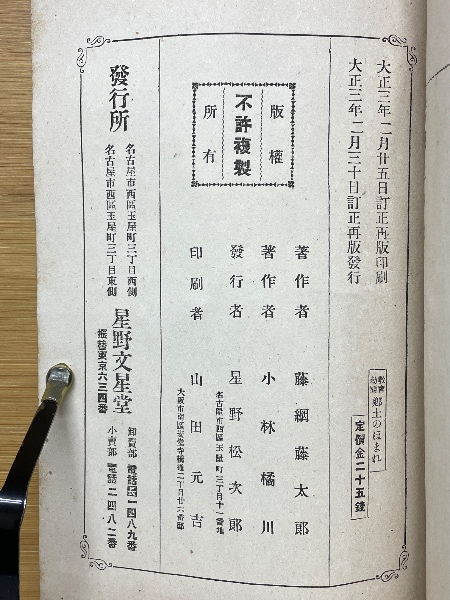 大正三年二月廿五日訂正再版印刷
大正三年二月三十日訂正再版發行
教育
勅語
郷土のほまれ
定價金二十五錢
版權
所有
不許複製
著作者 藤綱藤太郎
著作者 小林橘川
發行者 星野松次郎
名古屋市西區玉屋町三丁目十一番地
印刷者 山田元吉
大阪市南區安堂寺橋通二丁目廿六番邸
發行所
名古屋市西區玉屋町三丁目西側
名古屋市西區玉屋町三丁目東側
星野文星堂
振替東京六三四番
卸賣部 電話長一四八九番
小賣部 電話二四八二番